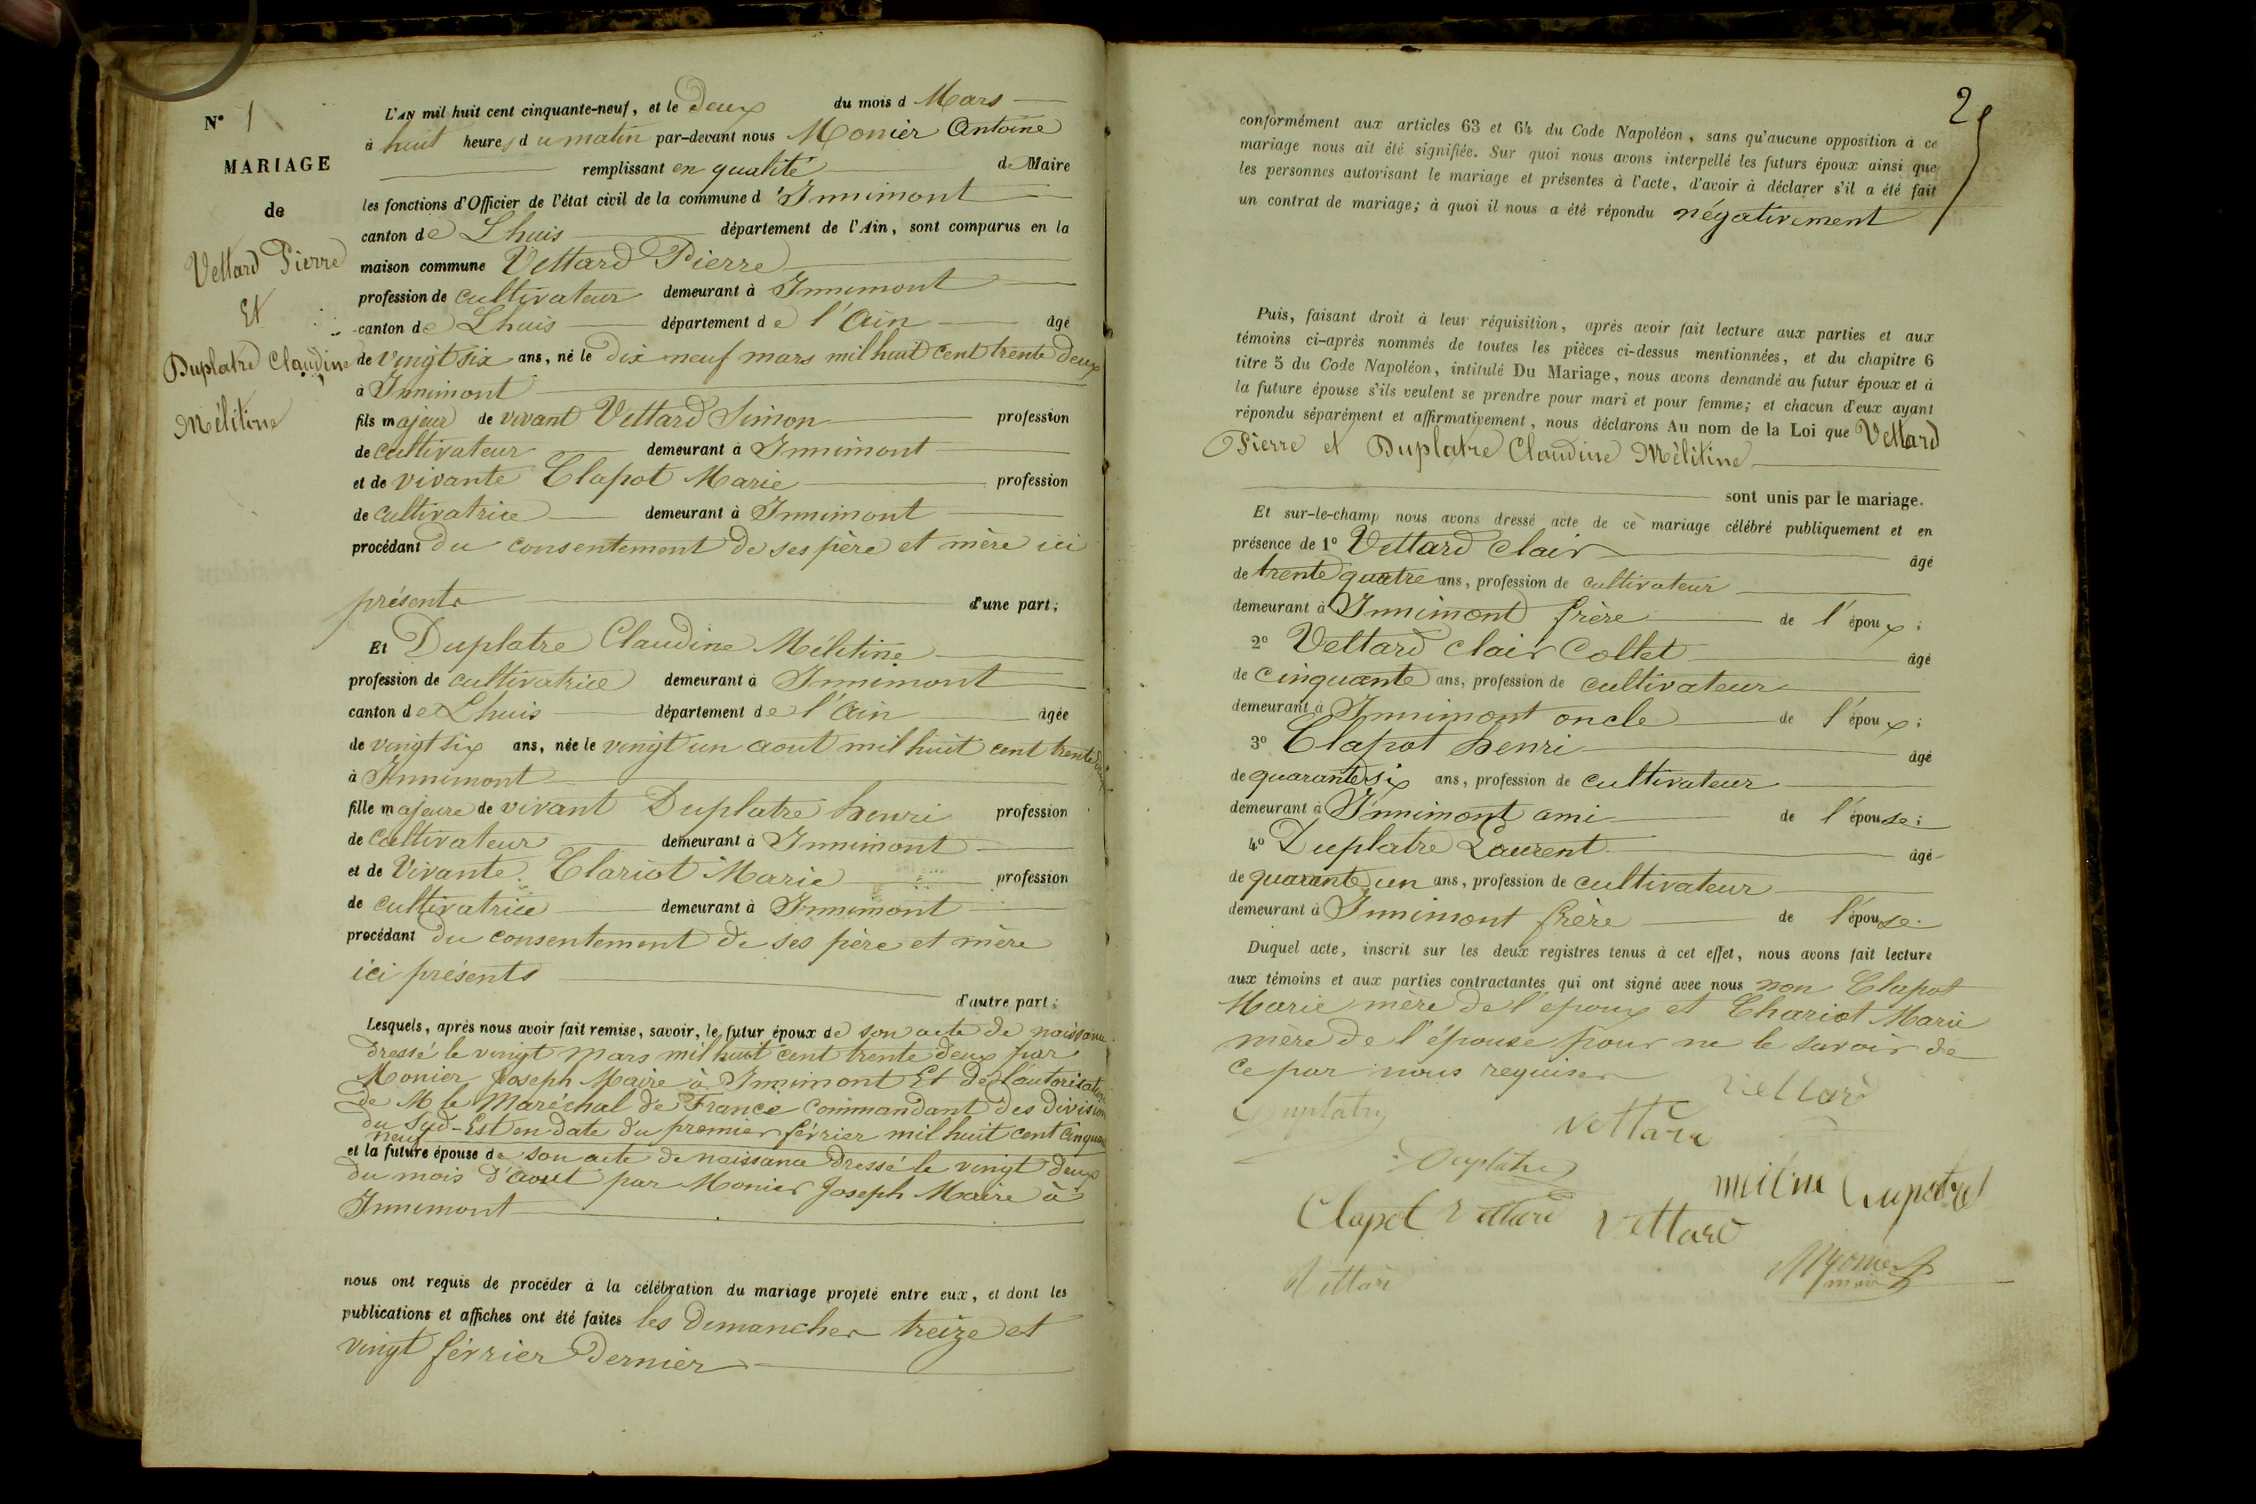 N° 1
MARIAGE
de
Vettard Pierre
Et
Duplatre Claudine
Mélitine
L'AN mil huit cent cinquante-neuf, et le deux du mois d Mars
à huit heures du matin par-devant nous Monier Antoine
remplissant en qualité de Maire
les fonctions d'Officier de l'état civil de la commune d'Innimont
canton de Lhuis département de l'Ain, sont comparus en la
maison commune Vettard Pierre
profession de cultivateur demeurant à Innimont
canton de Lhuis département de l'Ain âgé
de vingt six ans, né le dix neuf mars mil huit cent trente deux
à Innimont
fils majeur de vivant Vettard Simon profession
de cultivateur demeurant à Innimont
et de vivante Clapot Marie profession
de cultivatrice demeurant à Innimont
procédant du consentement de ses père et mère ici
présents d'une part;
Et Duplatre Claudine Mélitine
profession de cultivatrice demeurant à Innimont
canton de Lhuis département de l'Ain âgée
de vingt six ans, née le vingt un aout mil huit cent trente deux
à Innimont
fille majeure de vivant Duplatre henri profession
de cultivateur demeurant à Innimont
et de Vivante Clariot Marie profession
de cultivatrice demeurant à Innimont
procédant du consentement de ses père et mère
ici présents
d'autre part;
Lesquels, après nous avoir fait remise, savoir, le futur époux de son acte de naissance
dressé le vingt mars mil huit cent trente deux par
Monier Joseph Maire à Innimont Et de l'autorisation
de M le Maréchal de France commandant des division
du Sud-Est en date du premier février mil huit cent cinquante
neuf
et la future épouse de son acte de naissance dressé le vingt deux
du mois d'aout par Monier Joseph Maire à
Innimont
nous ont requis de procéder à la célébration du mariage projeté entre eux, et dont les
publications et affiches ont été faites les dimanches treize et
vingt février dernier
2
conformément aux articles 63 et 64 du Code Napoléon, sans qu'aucune opposition à ce
mariage nous ait été signifiée. Sur quoi nous avons interpellé les futurs époux ainsi que
les personnes autorisant le mariage et présentes à l'acte, d'avoir à déclarer s'il a été fait
un contrat de mariage; à quoi il nous a été répondu négativement
Puis, faisant droit à leur réquisition, après avoir fait lecture aux parties et aux
témoins ci-après nommés de toutes les pièces ci-dessus mentionnées, et du chapitre 6
titre 5 du Code Napoléon, intitulé Du Mariage, nous avons demandé au futur époux et à
la future épouse s'ils veulent se prendre pour mari et pour femme; et chacun d'eux ayant
répondu séparément et affirmativement, nous déclarons Au nom de la Loi que Vettard
Pierre et Duplatre Claudine Mélitine
sont unis par le mariage.
Et sur-le-champ nous avons dressé acte de ce mariage célébré publiquement et en
présence de 1° Vettard Clair âgé
de trente quatre ans, profession de cultivateur
demeurant à Innimont frère de l'époux;
2° Vettard Clair Collet âgé
de cinquante ans, profession de cultivateur
demeurant à Innimont oncle de l'époux;
3° Clapot henri âgé
de quarante six ans, profession de cultivateur
demeurant à Innimont ami de l'épouse;
4° Duplatre Laurent âgé
de quarante un ans, profession de cultivateur
demeurant à Innimont frère de l'épouse.
Duquel acte, inscrit sur les deux registres tenus à cet effet, nous avons fait lecture
aux témoins et aux parties contractantes qui ont signé avec nous non Clapot
Marie mère de l'époux et Chariot Marie
mère de l'épouse pour ne le savoir de
ce par nous requises
Vettard
Duplatre
Vettard
Duplatre
Clapot Vettard Vettard
Vettard
Monier
maire